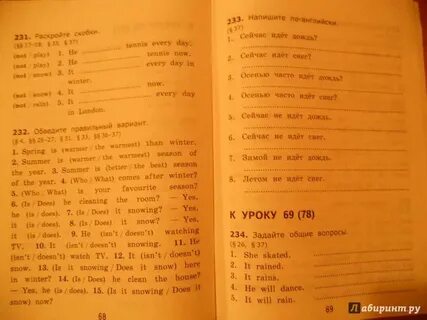 231. Раскройте скобки.
(§§ 27-28, § 33, § 37)
(not / play) 1. He ______ tennis every day.
(not / play) 2. He ______ tennis now.
(not / snow) 3. It ______ every day in
winter.
(not / snow) 4. It ______ now.
(not / rain) 5. It ______ every day
in London.
232. Обведите правильный вариант.
1. Spring is (warmer / the warmest) than winter.
2. Summer is (warmer / the warmest) season of
the year. 3. Summer is (better / the best) season
of the year. 4. (Who / What) comes after winter?
5. (Who / What) is your favourite season?
6. (Is / Does) he cleaning the room? — Yes,
he (is / does). 7. (Is / Does) it snowing? — Yes,
it (is / does). 8. (Is / Does) it snowing? — Yes,
it (is / does). 9. He (isn't / doesn't) watching
TV. 10. It (isn't / doesn't) snowing. 11. He
(isn't / doesn't) watch TV. 12. It (isn't / doesn't)
snow. 13. (Is it snowing / Does it snow) here
in winter? 14. (Is / Does) he clean the house?
— Yes, he (is / does). 15. (Is it snowing / Does it snow)
now?
68
233. Напишите по-английски.
(§ 37)
1. Сейчас идёт дождь.
2. Сейчас идёт снег.
3. Осенью часто идёт дождь.
4. Осенью часто идёт снег.
5. Сейчас не идёт дождь.
6. Сейчас не идёт снег.
7. Зимой не идёт дождь.
8. Летом не идёт снег.
К УРОКУ 69 (78)
234. Задайте общие вопросы.
(§ 26, § 37)
1. She skated.
2. It rained.
3. It rains.
4. He will dance.
5. It will rain.
69
Лабиринт.ру